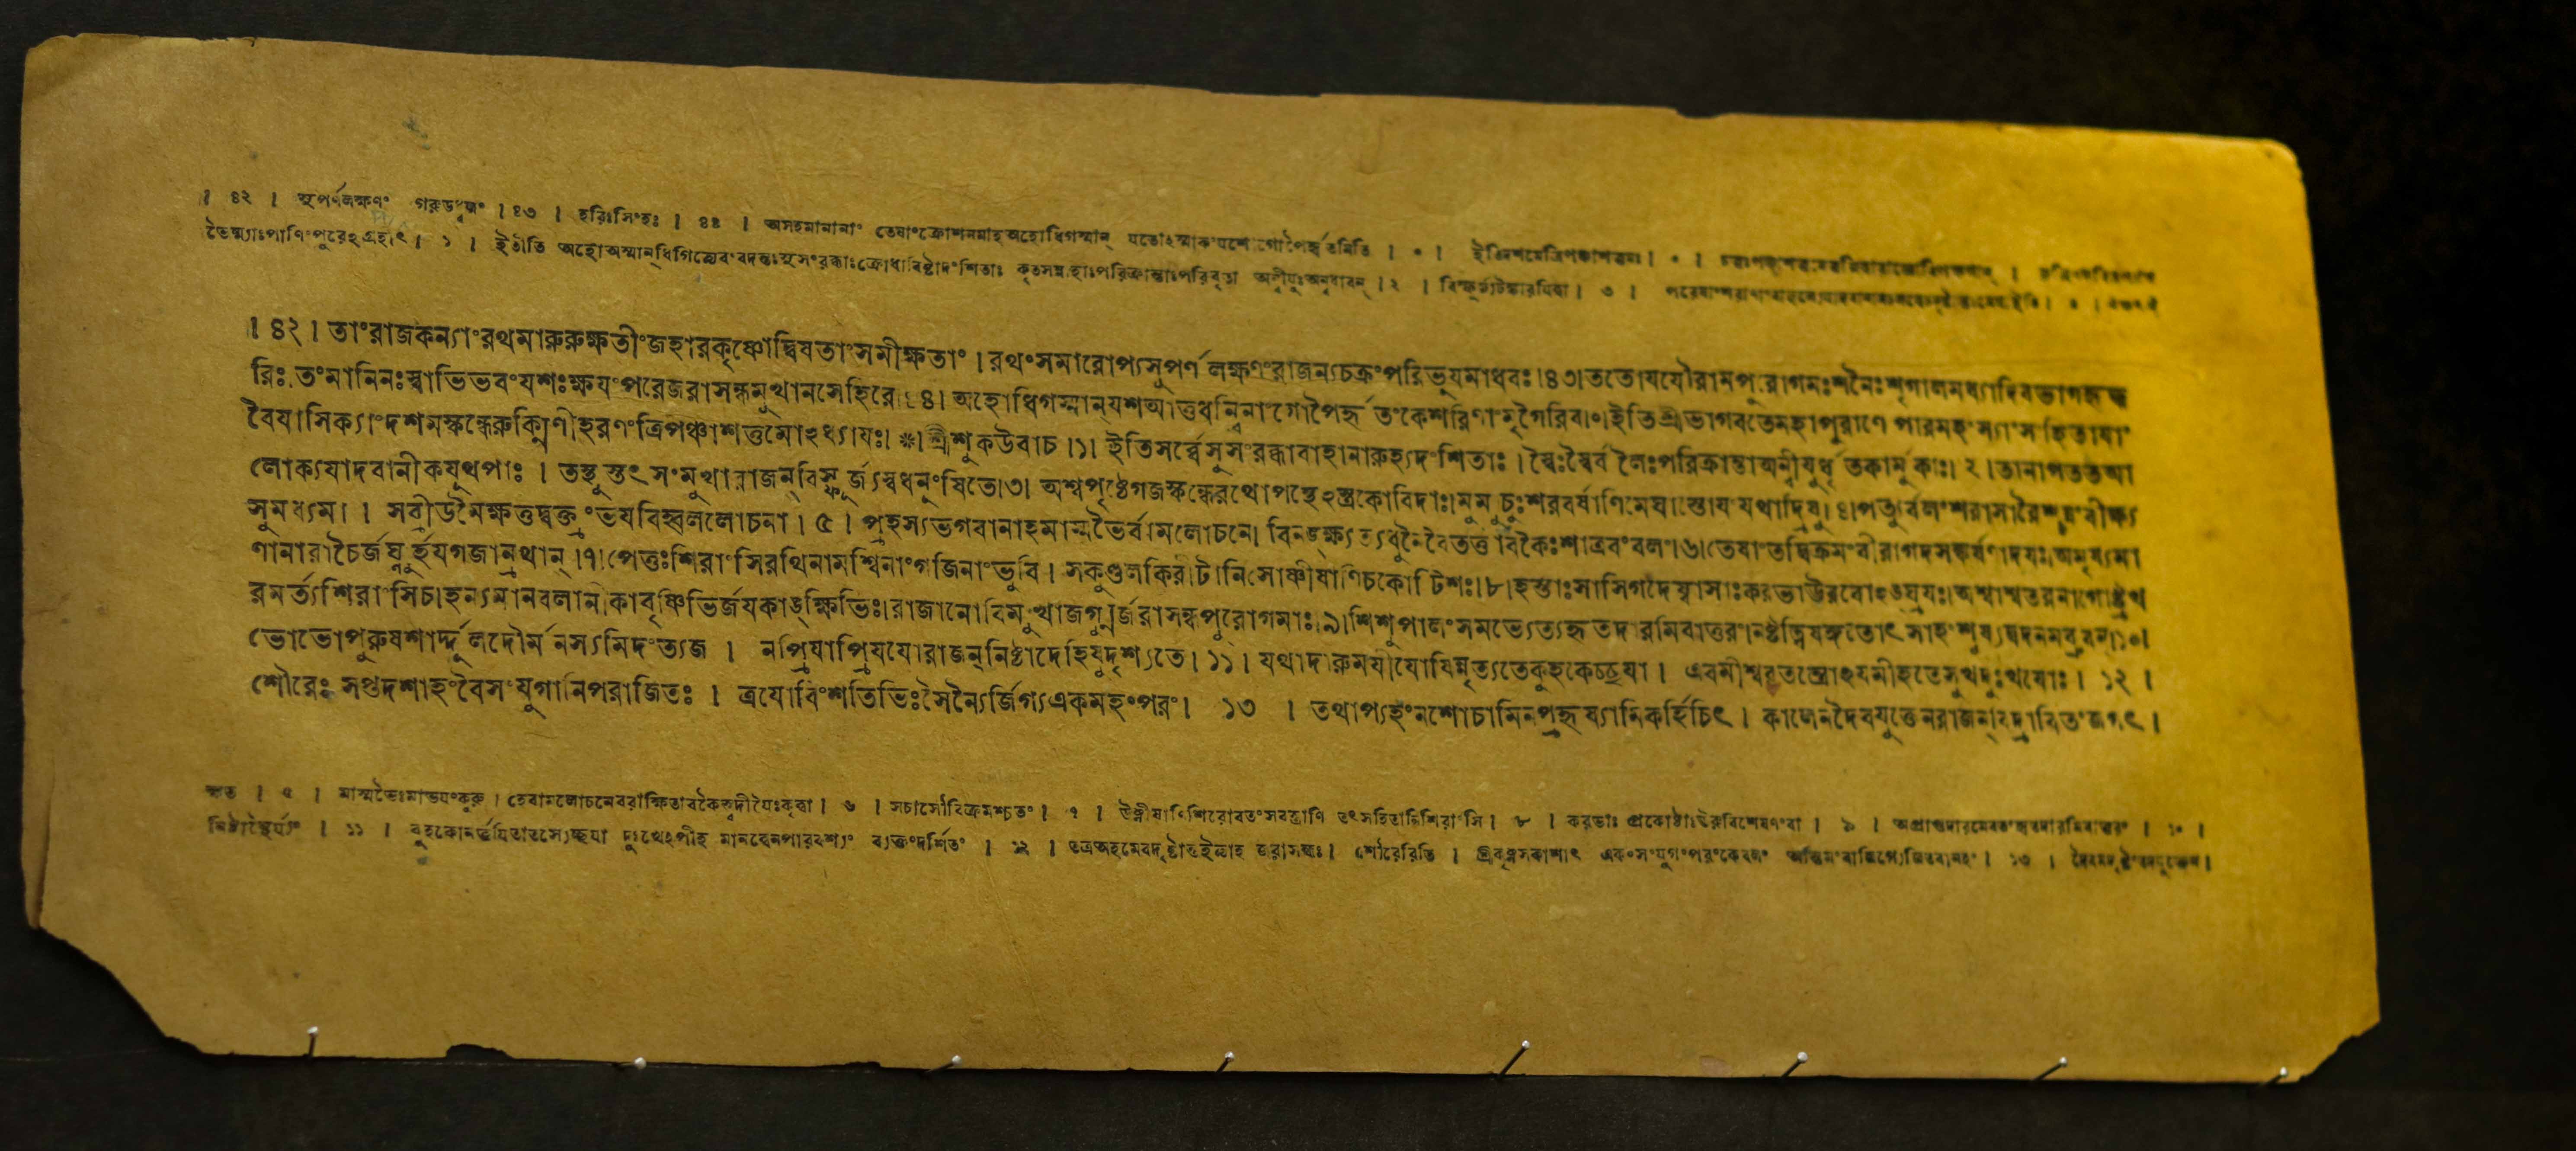 । ৪২ । সুপর্ণলক্ষণং গরুডধ্বজং । ৪৩ । হরিঃসিংহঃ । ৪৪ । অসহমানানাং তেষাংক্রোশনমাহঅহোধিগস্মান্ যতোঽস্মাকংযশোগোপৈর্হৃতমিতি । ০ । ইতিদশমেত্রিপঞ্চাশত্তমঃ । ০ ।
ভৈষ্ম্যাঃপাণিংপুরেঽগ্রহীৎ । ১ । ইতীতি অহোঅস্মান্ধিগিত্যেবংবদন্তঃসুসংরব্ধাঃক্রোধাবিষ্টাদংশিতাঃ কৃতসন্নাহাঃপরিক্রান্তাঃপরিবৃতা অন্বীয়ুঃঅন্বধাবন্ । ২ । বিস্ফূর্জ্যটঙ্কারয়িত্বা । ৩ ।
। ৪২ । তাংরাজকন্যাংরথমারুরুক্ষতীংজহারকৃষ্ণোদ্বিষতাংসমীক্ষতাং । রথংসমারোপ্যসুপর্ণলক্ষণংরাজন্যচক্রংপরিভূযমাধবঃ ।৪৩।ততোযযৌরামপুরোগমঃশনৈঃশৃগালমধ্যাদিবভাগহৃদ্ধ
রিঃ তংমানিনঃস্বাভিভবংযশঃক্ষযংপরেজরাসন্ধমুখানসেহিরে।৪৪। অহোধিগস্মান্যশআত্তধন্বিনাংগোপৈর্হৃতংকেশরিণাংমৃগৈরিব।০।ইতিশ্রীভাগবতেমহাপুরাণে পারমহংস্যাংসংহিতাযাং
বৈযাসিক্যাংদশমস্কন্ধেরুক্মিণীহরণংত্রিপঞ্চাশত্তমোঽধ্যাযঃ। ※। শ্রীশুকউবাচ ।১। ইতিসর্ব্বেসুসংরব্ধাবাহানারুহ্যদংশিতাঃ । স্বৈঃস্বৈর্বলৈঃপরিক্রান্তাঅন্বীযুর্ধৃতকার্মুকাঃ। ২ ।তানাপততআ
লোক্যযাদবানীকযূথপাঃ । তস্থুস্তৎসংমুখারাজন্বিস্ফূর্জ্যস্বধনূংষিতে।৩। অশ্বপৃষ্ঠেগজস্কন্ধেরথোপস্থেঽস্ত্রকোবিদাঃ।মুমুচুঃশরবর্ষাণিমেঘাস্তোযংযথাদ্রিষু। ৪।পত্যুর্বলংশরাসারৈশ্ছন্নংবীক্ষ্য
সুমধ্যমা । সব্রীডমৈক্ষত্তদ্বক্ত্রংভযবিহ্বললোচনা । ৫ । প্রহস্যভগবানাহমাস্মভৈর্বামলোচনে। বিনঙ্ক্ষ্যত্যধুনৈবৈতত্তাবকৈঃশাত্রবংবলং।৬।তেষাংতদ্বিক্রমংবীরাগদসঙ্কর্ষণাদযঃ।অমৃষ্যমা
ণানারাচৈর্জঘ্নুর্হযগজান্রথান্ ।৭।পেতুঃশিরাংসিরথিনামশ্বিনাংগজিনাংভুবি । সকুণ্ডলকিরীটানিসোষ্ণীষাণিচকোটিশঃ।৮।হস্তাঃসাসিগদেষ্বাসাঃকরভাঊরবোঽঙ্ঘ্রযঃ।অশ্বাশ্বতরনাগোষ্ট্রখ
রমর্ত্যশিরাংসিচ।হন্যমানবলানীকাবৃষ্ণিভির্জযকাঙ্ক্ষিভিঃ।রাজানোবিমুখাজগ্মুর্জরাসন্ধপুরোগমাঃ।৯।শিশুপালংসমভ্যেত্যহৃতদারমিবাতুরং।নষ্টত্বিষংগতোৎসাহংশুষ্যদ্বদনমব্রুবন্।১০।
ভোভোপুরুষশার্দ্দূলদৌর্মনস্যমিদংত্যজ । নপ্রিযাপ্রিযযোরাজন্নিষ্ঠাদেহিষুদৃশ্যতে। ১১ । যথাদারুমযীযোষিন্নৃত্যতেকুহকেচ্ছযা । এবমীশ্বরতন্ত্রোঽযমীহতেসুখদুঃখযোঃ । ১২ ।
শৌরেঃ সপ্তদশাহংবৈসংযুগানিপরাজিতঃ । ত্রযোবিংশতিভিঃসৈন্যৈর্জিগ্যএকমহংপরং । ১৩ । তথাপ্যহংনশোচামিনপ্রহৃষ্যামিকর্হিচিৎ । কালেনদৈবযুক্তেনরাজন্বিদ্রাবিতংজগৎ ।
ক্ষত । ৫ । মাস্মভৈঃমাভযংকুরু । হেবামলোচনে । ৬ । সচাসৌবিক্রমশ্চতং । ৭ । উষ্ণীষাণিশিরোবতংসবস্ত্রাণি তৎসহিতানিশিরাংসি । ৮ । করভাঃ প্রকোষ্ঠাঃউরুবিশেষণংবা । ৯ । । ১০ ।
নিষ্ঠাস্থৈর্য্যং । ১১ । কুহকোনর্ত্তযিতাতস্যেচ্ছযা দুঃখেঽপীহ মানত্বেনপারবশ্যং ব্যক্তংদর্শিতং । ১২ । তত্রঅহমেবদৃষ্টান্তইত্যাহ জরাসন্ধঃ । শৌরেরিতি । শ্রীকৃষ্ণসকাশাৎ একংসংযুগংপরংকেবলং । ১৩ ।